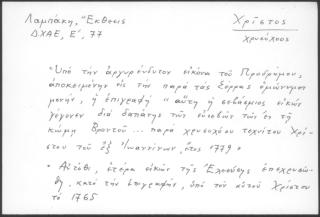 Λαμπάκη, "Εκθεσις
ΔΧΑΕ, Ε', 77
Χρῖστος
χρυσοχόος
"Υπό τήν ἀργυρένδυτον εἰκόνα τοῦ Προδρόμου,
ἀποκειμένην εἰς τήν παρά τάς Σέρρας ὁμώνυμον
μονήν, ἡ ἐπιγραφή " αὕτη ἡ σεβάσμιος εἰκών
γέγονεν διά δαπάνης τῶν εὐσεβῶν τῶν ἐν τῇ
κώμῃ Βροντοῦ ... παρά χρυσοχόου τεχνίτου Χρί-
στου τοῦ ἐξ Ἰωαννίνων, ἔτος 1779 »
" Αὐτόθι, ἑτέρα εἰκών τῆς Ἐλεούσης ἐπεχρυσώ-
θη, κατά τήν ἐπιγραφήν, ὑπό τοῦ αὐτοῦ Χρίστου
τό 1765